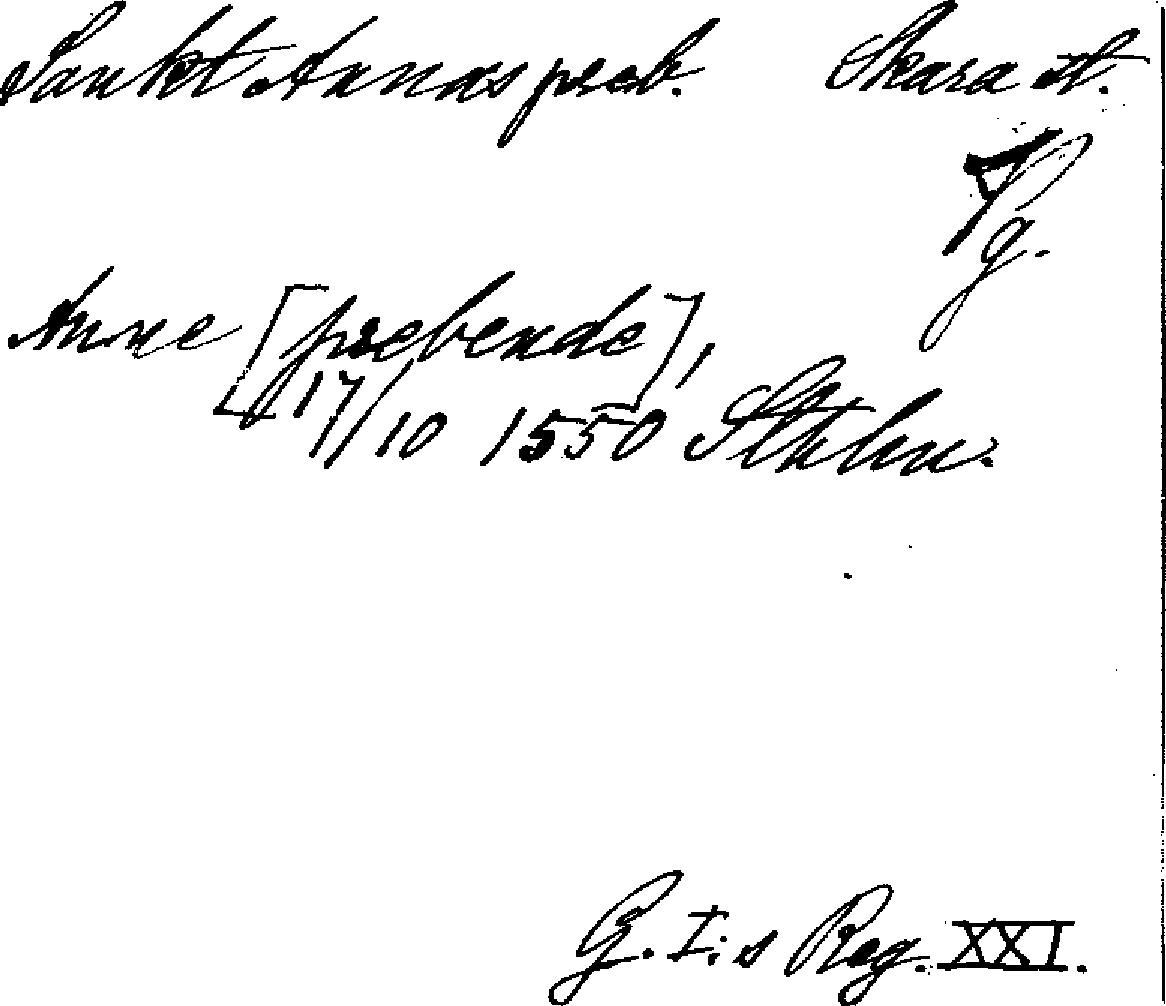 Sankt Annas preb. Skara st.
Vg.
Anne [prebende],
17/10 1550 Sthlm.
G. I:s Reg. XXI.